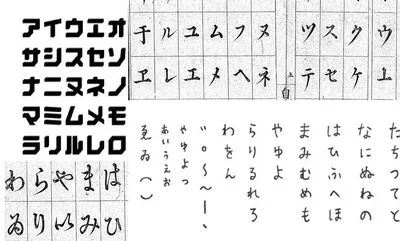 アイウエオ
サシスセソ
ナニヌネノ
マミムメモ
ラリルレロ
于ルユムフヌ
ヱレエメヘネ
自
ツスクウ
テセケ
わらやまは
ゐりいみひ
たちつてと
なにぬねの
はひふへほ
まみむめも
やゆよ
らりるれろ
わをん
ゃゅょっ
ぁぃぅぇぉ
ゑゐ()